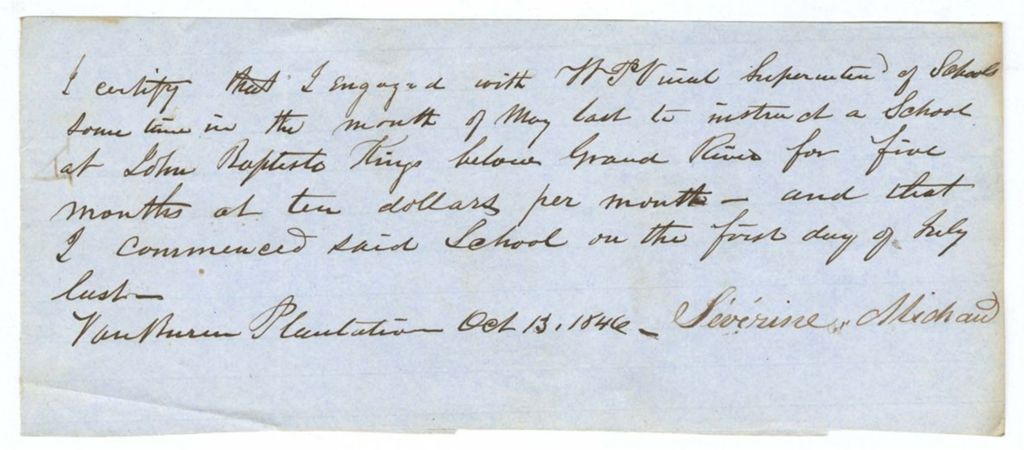 I certify that I engaged with W P Vinal Superinten^d of Schools
some time in the month of May last to instruct a School
at John Baptiste Kings below Grand River for five
months at ten dollars per month – and that
I commenced said School on the first day of July
last –
Van Buren Plantation Oct 13, 1846 – Sévérine Michaud